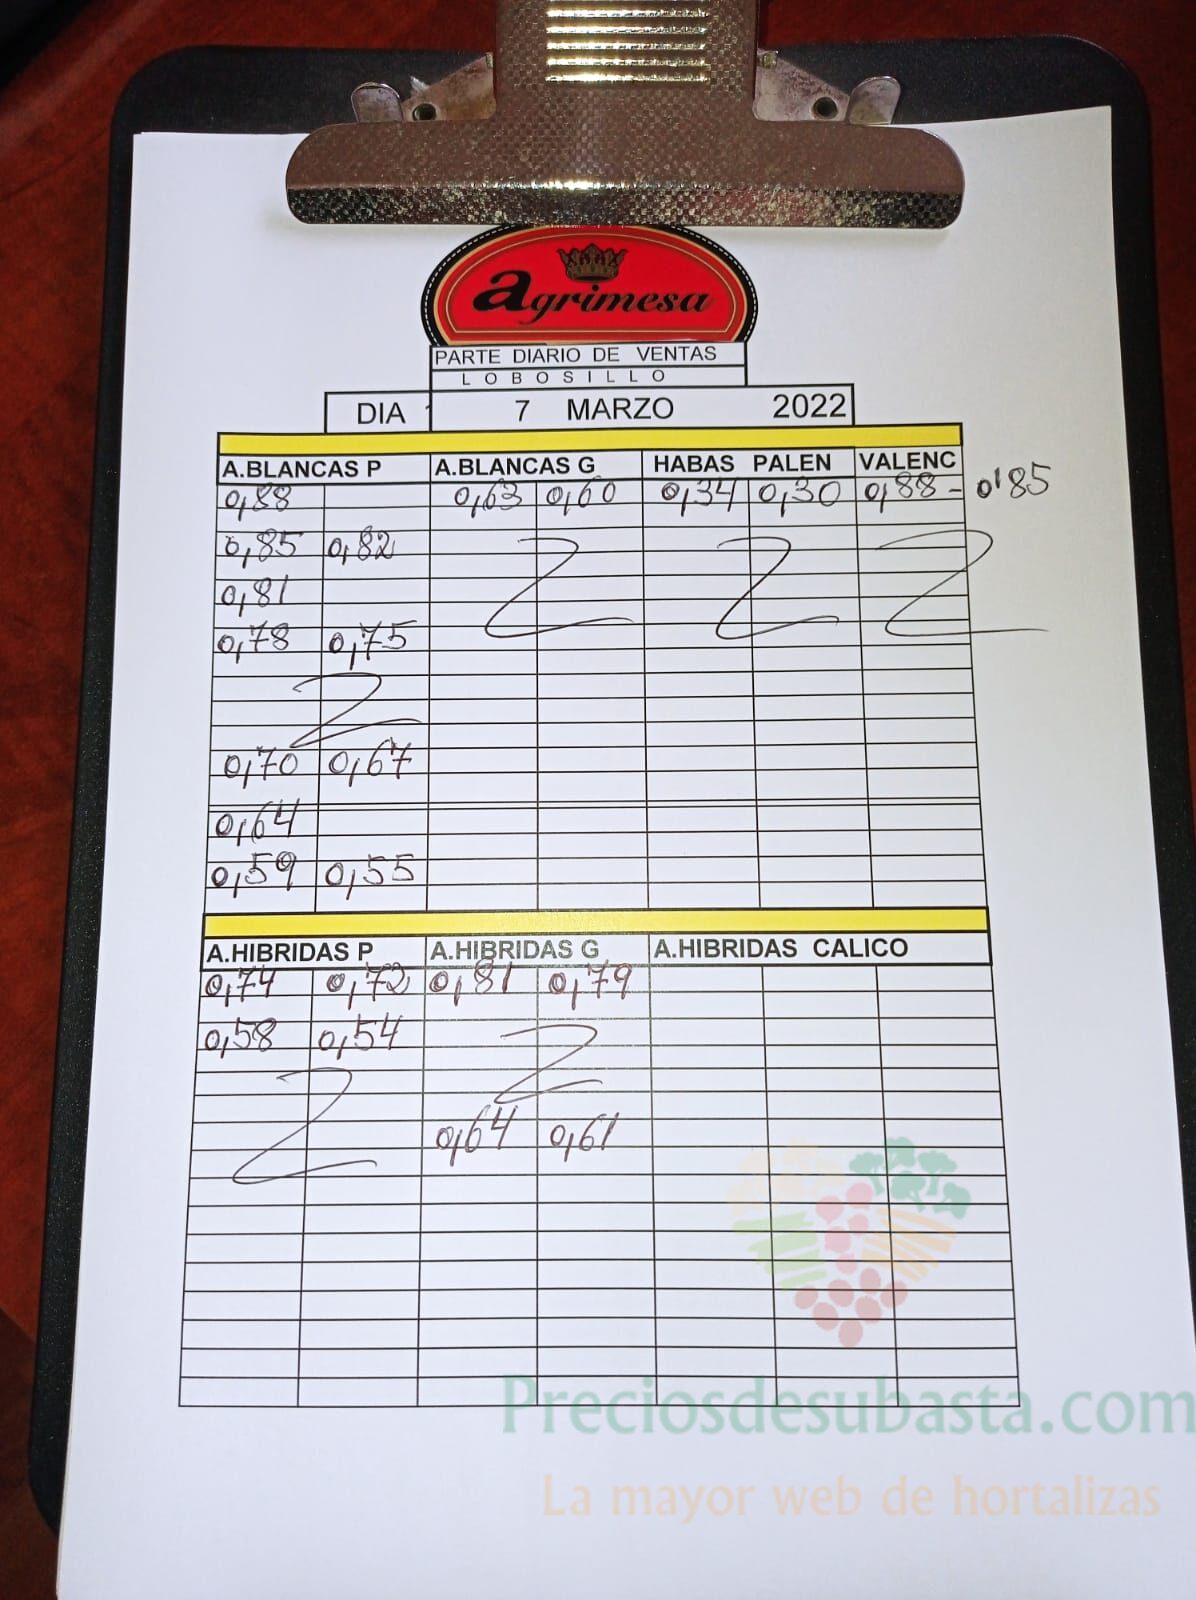 agrimesa
PARTE DIARIO DE VENTAS
LOBOSILLO
DIA 7 MARZO 2022
A.BLANCAS P A.BLANCAS G HABAS PALEN VALENC
0,88 0,63 0,60 0,34 0,30 0,88 - 0'85
0,85 0,82
0,81
0,78 0,75
0,70 0,67
0,64
0,59 0,55
A.HIBRIDAS P A.HIBRIDAS G A.HIBRIDAS CALICO
0,74 0,72 0,81 0,79
0,58 0,54
0,64 0,61
Preciosdesubasta.com
La mayor web de hortalizas